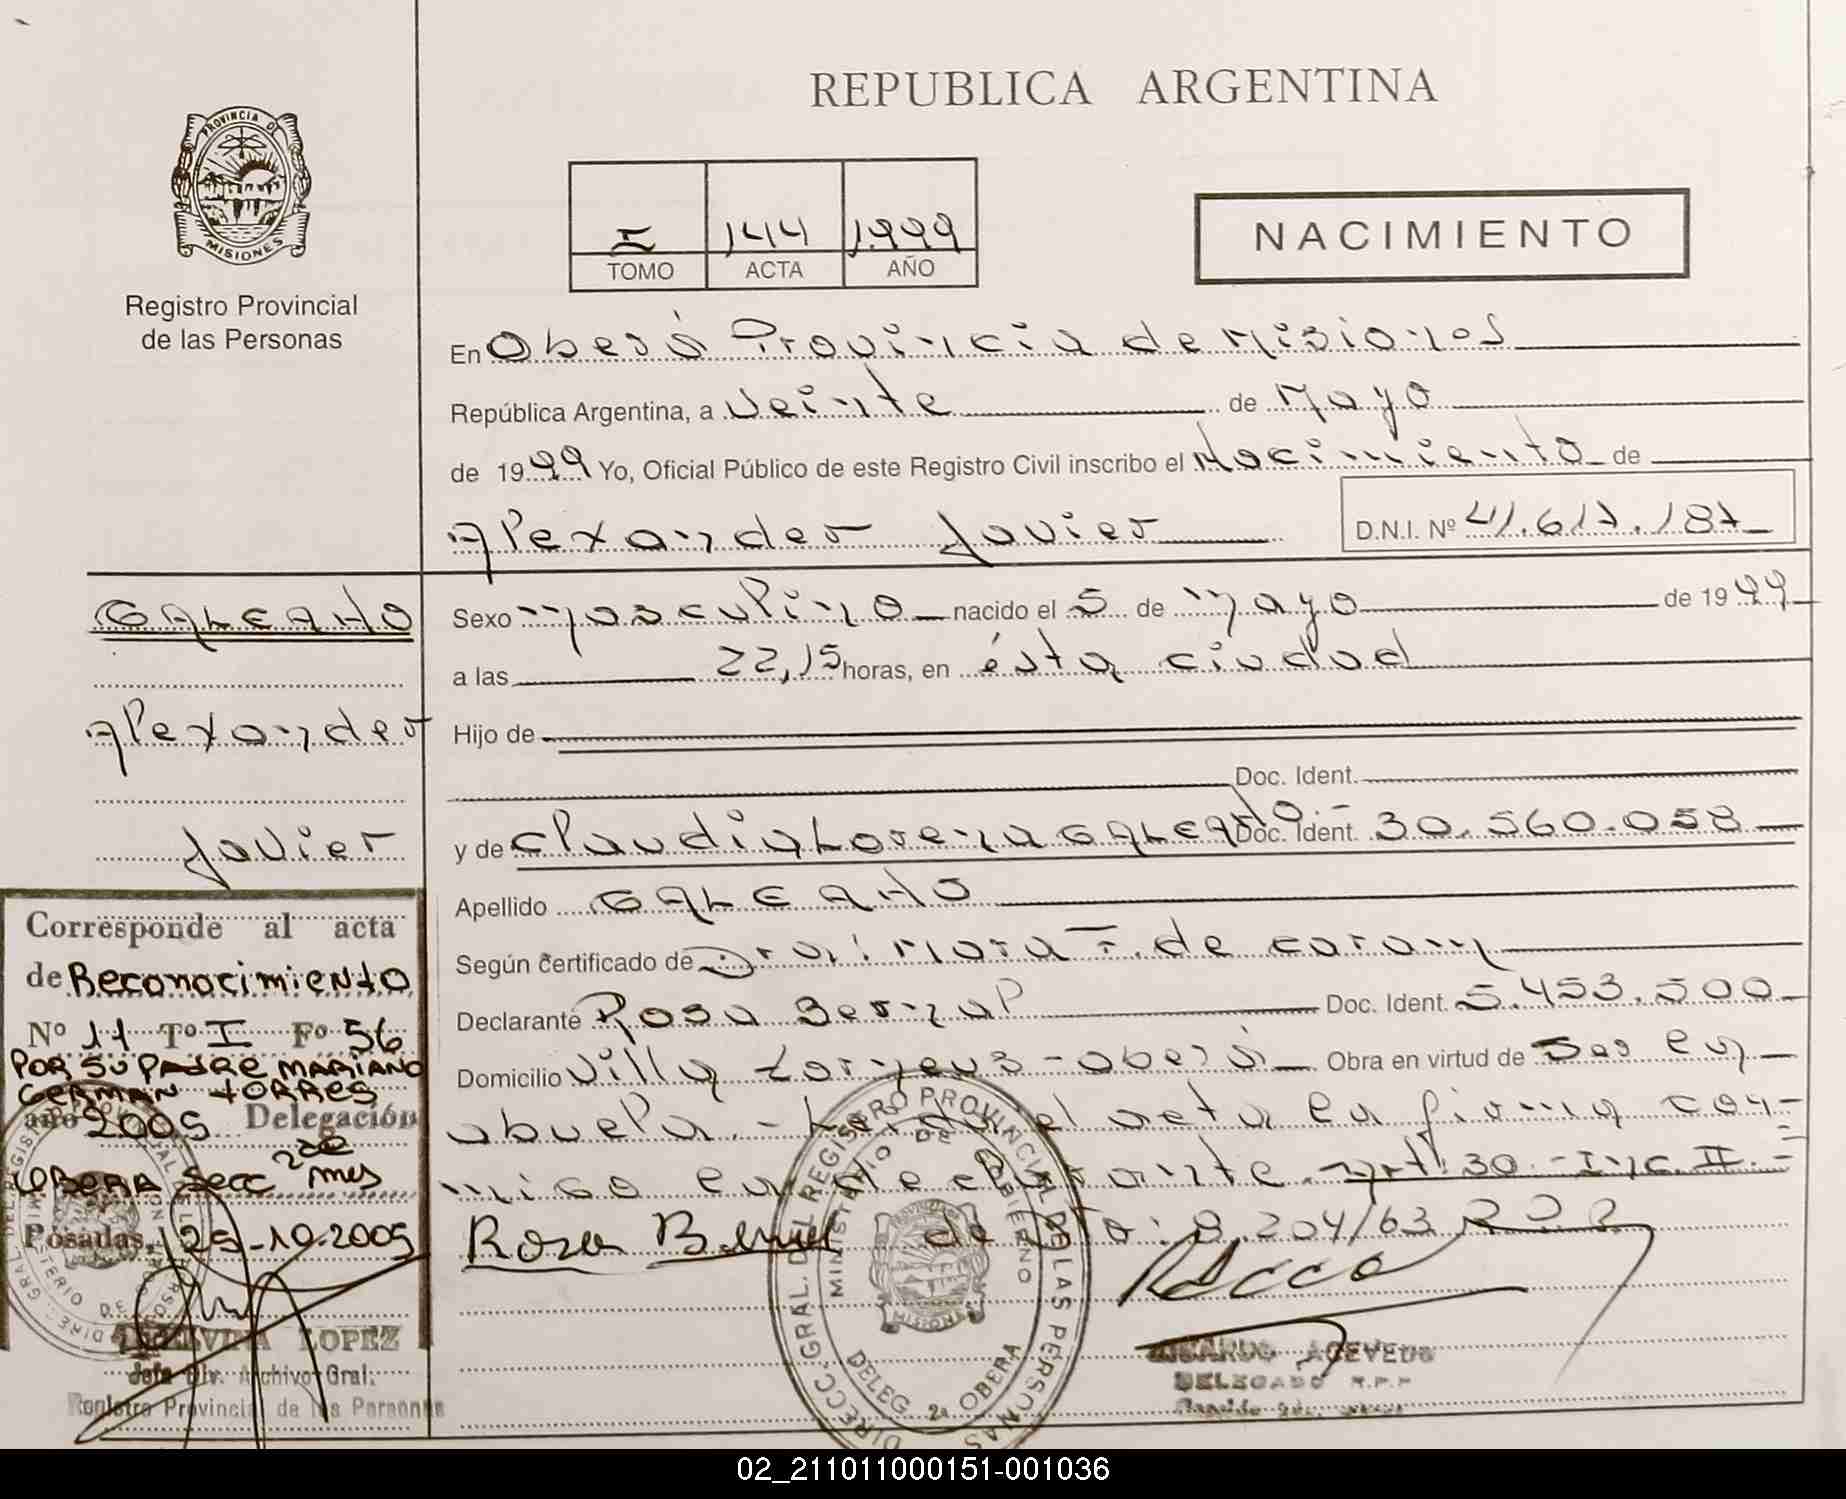 REPUBLICA ARGENTINA
PROVINCIA DE
MISIONES
Registro Provincial
de las Personas
I 144 1.999
TOMO ACTA AÑO
NACIMIENTO
En Oberá Provincia de Misiones
República Argentina, a Veinte de Mayo
de 1999 Yo, Oficial Público de este Registro Civil inscribo el Nacimiento de
Alexander Javier D.N.I. Nº 41.617.187
GALEANO
Alexander
Javier
Sexo masculino nacido el 5 de mayo de 1999
a las 22,15 horas, en ésta ciudad
Hijo de
Doc. Ident.
y de Claudia Lorena GALEANO.- Doc. Ident. 30.560.058
Apellido GALEANO
Según certificado de Dra: Mora T. de Caram
Declarante Rosa Bernal Doc. Ident. 5.453.500
Domicilio Villa - Oberá Obra en virtud de Ser la
abuela.- el acta la firma con-
migo la declarante. Art: 30.-Inc. II.-
de Dto: 8.204/63
Rosa Bernal
Corresponde al acta
de Reconocimiento
Nº 11 Tº I Fº 56
POR SU PADRE MARIANO
GERMAN TORRES
año 2005 Delegación
OBERA Secc 2da mns
Posadas, 25-10-2005
LOPEZ
Jefa Div. Archivo Gral.
Registro Provincial de las Personas
DIRECC. GRAL. DEL REGISTRO PROVINCIAL DE LAS PERSONAS
MINISTERIO DE GOBIERNO
MISIONES
DELEG. 2ª OBERA
RICARDO ACEVEDO
DELEGADO R.P.P
02_211011000151-001036